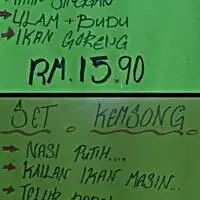 ULAM + BUDU
IKAN GORENG
RM.15.90
SET. KEMSONG.
NASI PUTIH....
KAILAN IKAN MASIN...
TELUR